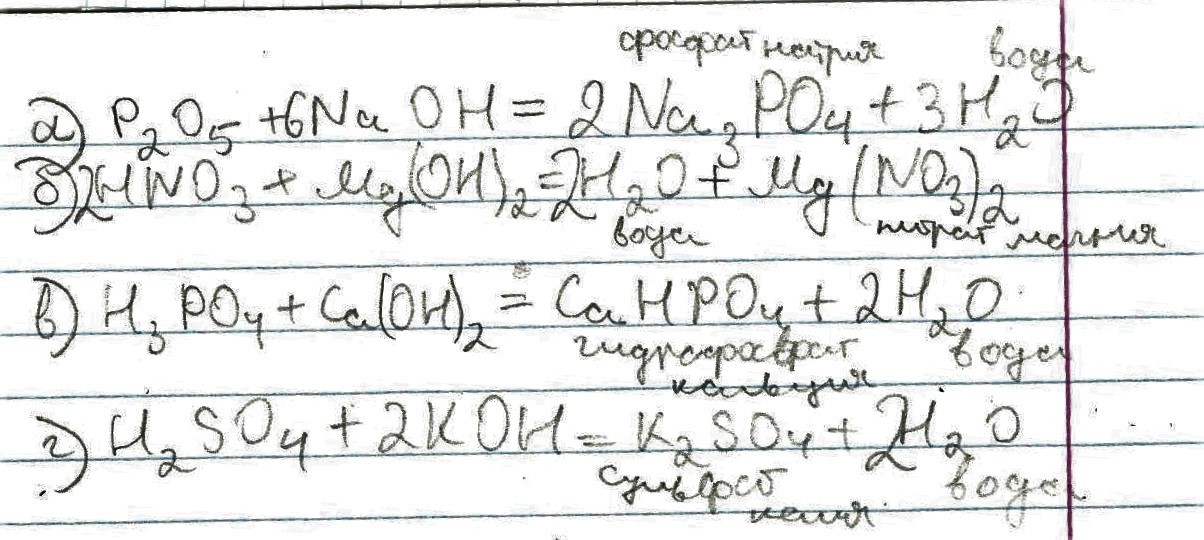 фосфат натрия вода
а) P₂O₅ + 6NaOH = 2Na₃PO₄ + 3H₂O
б) 2HNO₃ + Mg(OH)₂ = 2H₂O + Mg(NO₃)₂
вода нитрат магния
в) H₃PO₄ + Ca(OH)₂ = CaHPO₄ + 2H₂O
гидрофосфат вода
кальция
г) H₂SO₄ + 2KOH = K₂SO₄ + 2H₂O
сульфат вода
калия